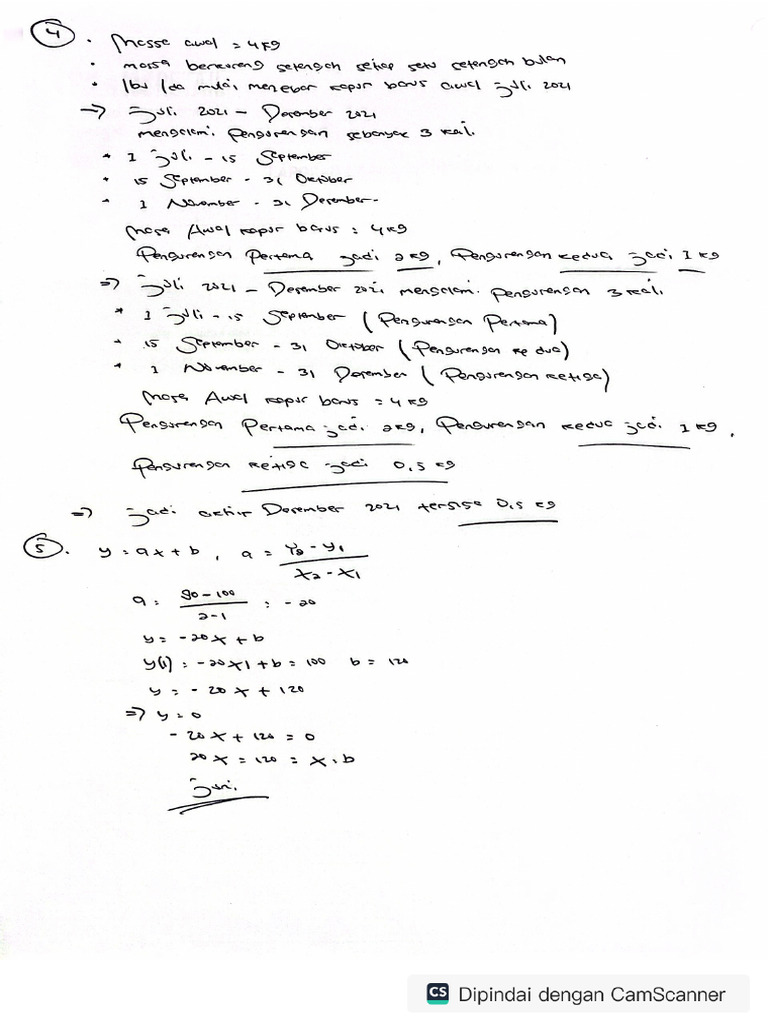 ④ . Massa awal = 4 kg
. massa berkurang setengah setiap satu setengah bulan
. Ibu Ida mulai menebar kapur barus awal Juli 2021
=> Juli 2021 - Desember 2021
mengalami pengurangan sebanyak 3 kali.
* 1 Juli - 15 September
* 15 September - 31 Oktober
* 1 November - 31 Desember.
Massa Awal kapur barus : 4 kg
Pengurangan Pertama jadi 2 kg, Pengurangan kedua jadi 1 kg
=> Juli 2021 - Desember 2021 mengalami pengurangan 3 kali.
* 1 Juli - 15 September (Pengurangan Pertama)
* 15 September - 31 Oktober (Pengurangan ke dua)
* 1 November - 31 Desember (Pengurangan ketiga)
Massa Awal kapur barus = 4 kg
Pengurangan Pertama jadi 2 kg, Pengurangan kedua jadi 1 kg,
Pengurangan ketiga jadi 0,5 kg
=> Jadi akhir Desember 2021 tersisa 0,5 kg
⑤ . y = ax + b , a = y2 - y1 / x2 - x1
a = 80 - 100 / 2 - 1 = -20
y = -20x + b
y(1) : -20x1 + b = 100 b = 120
y = -20x + 120
=> y = 0
-20x + 120 = 0
20x = 120 = x . b
Juni.
CS Dipindai dengan CamScanner